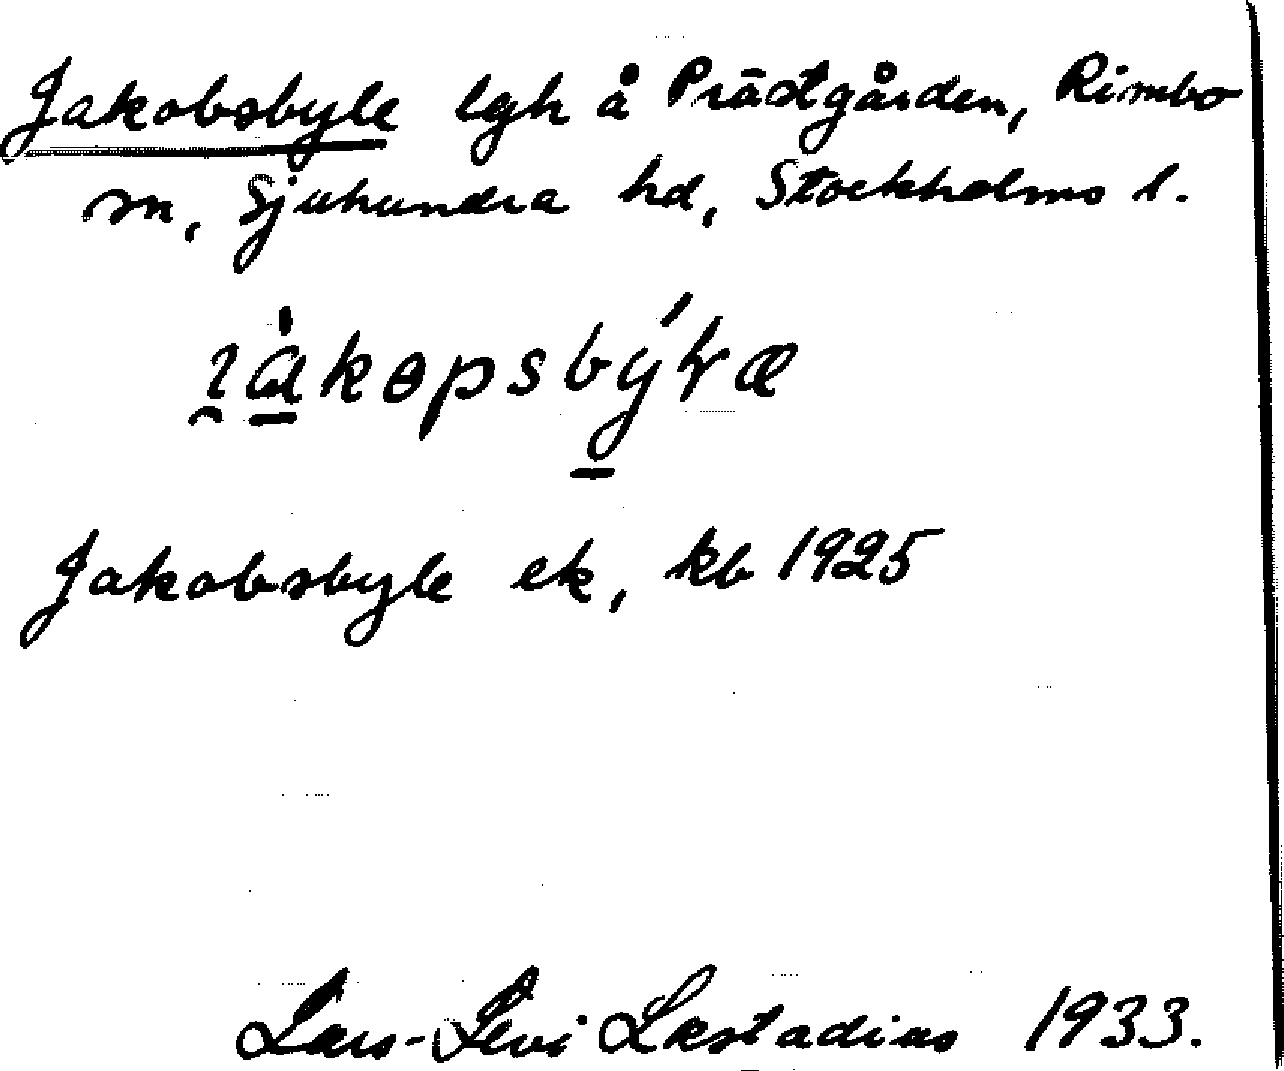 Jakobsbyle lgh å Prästgården, Rimbo
sn, Sjuhundra hd, Stockholms l.
Jakobsbyle ek, kb 1925
Lars-Levi Læstadius 1933.